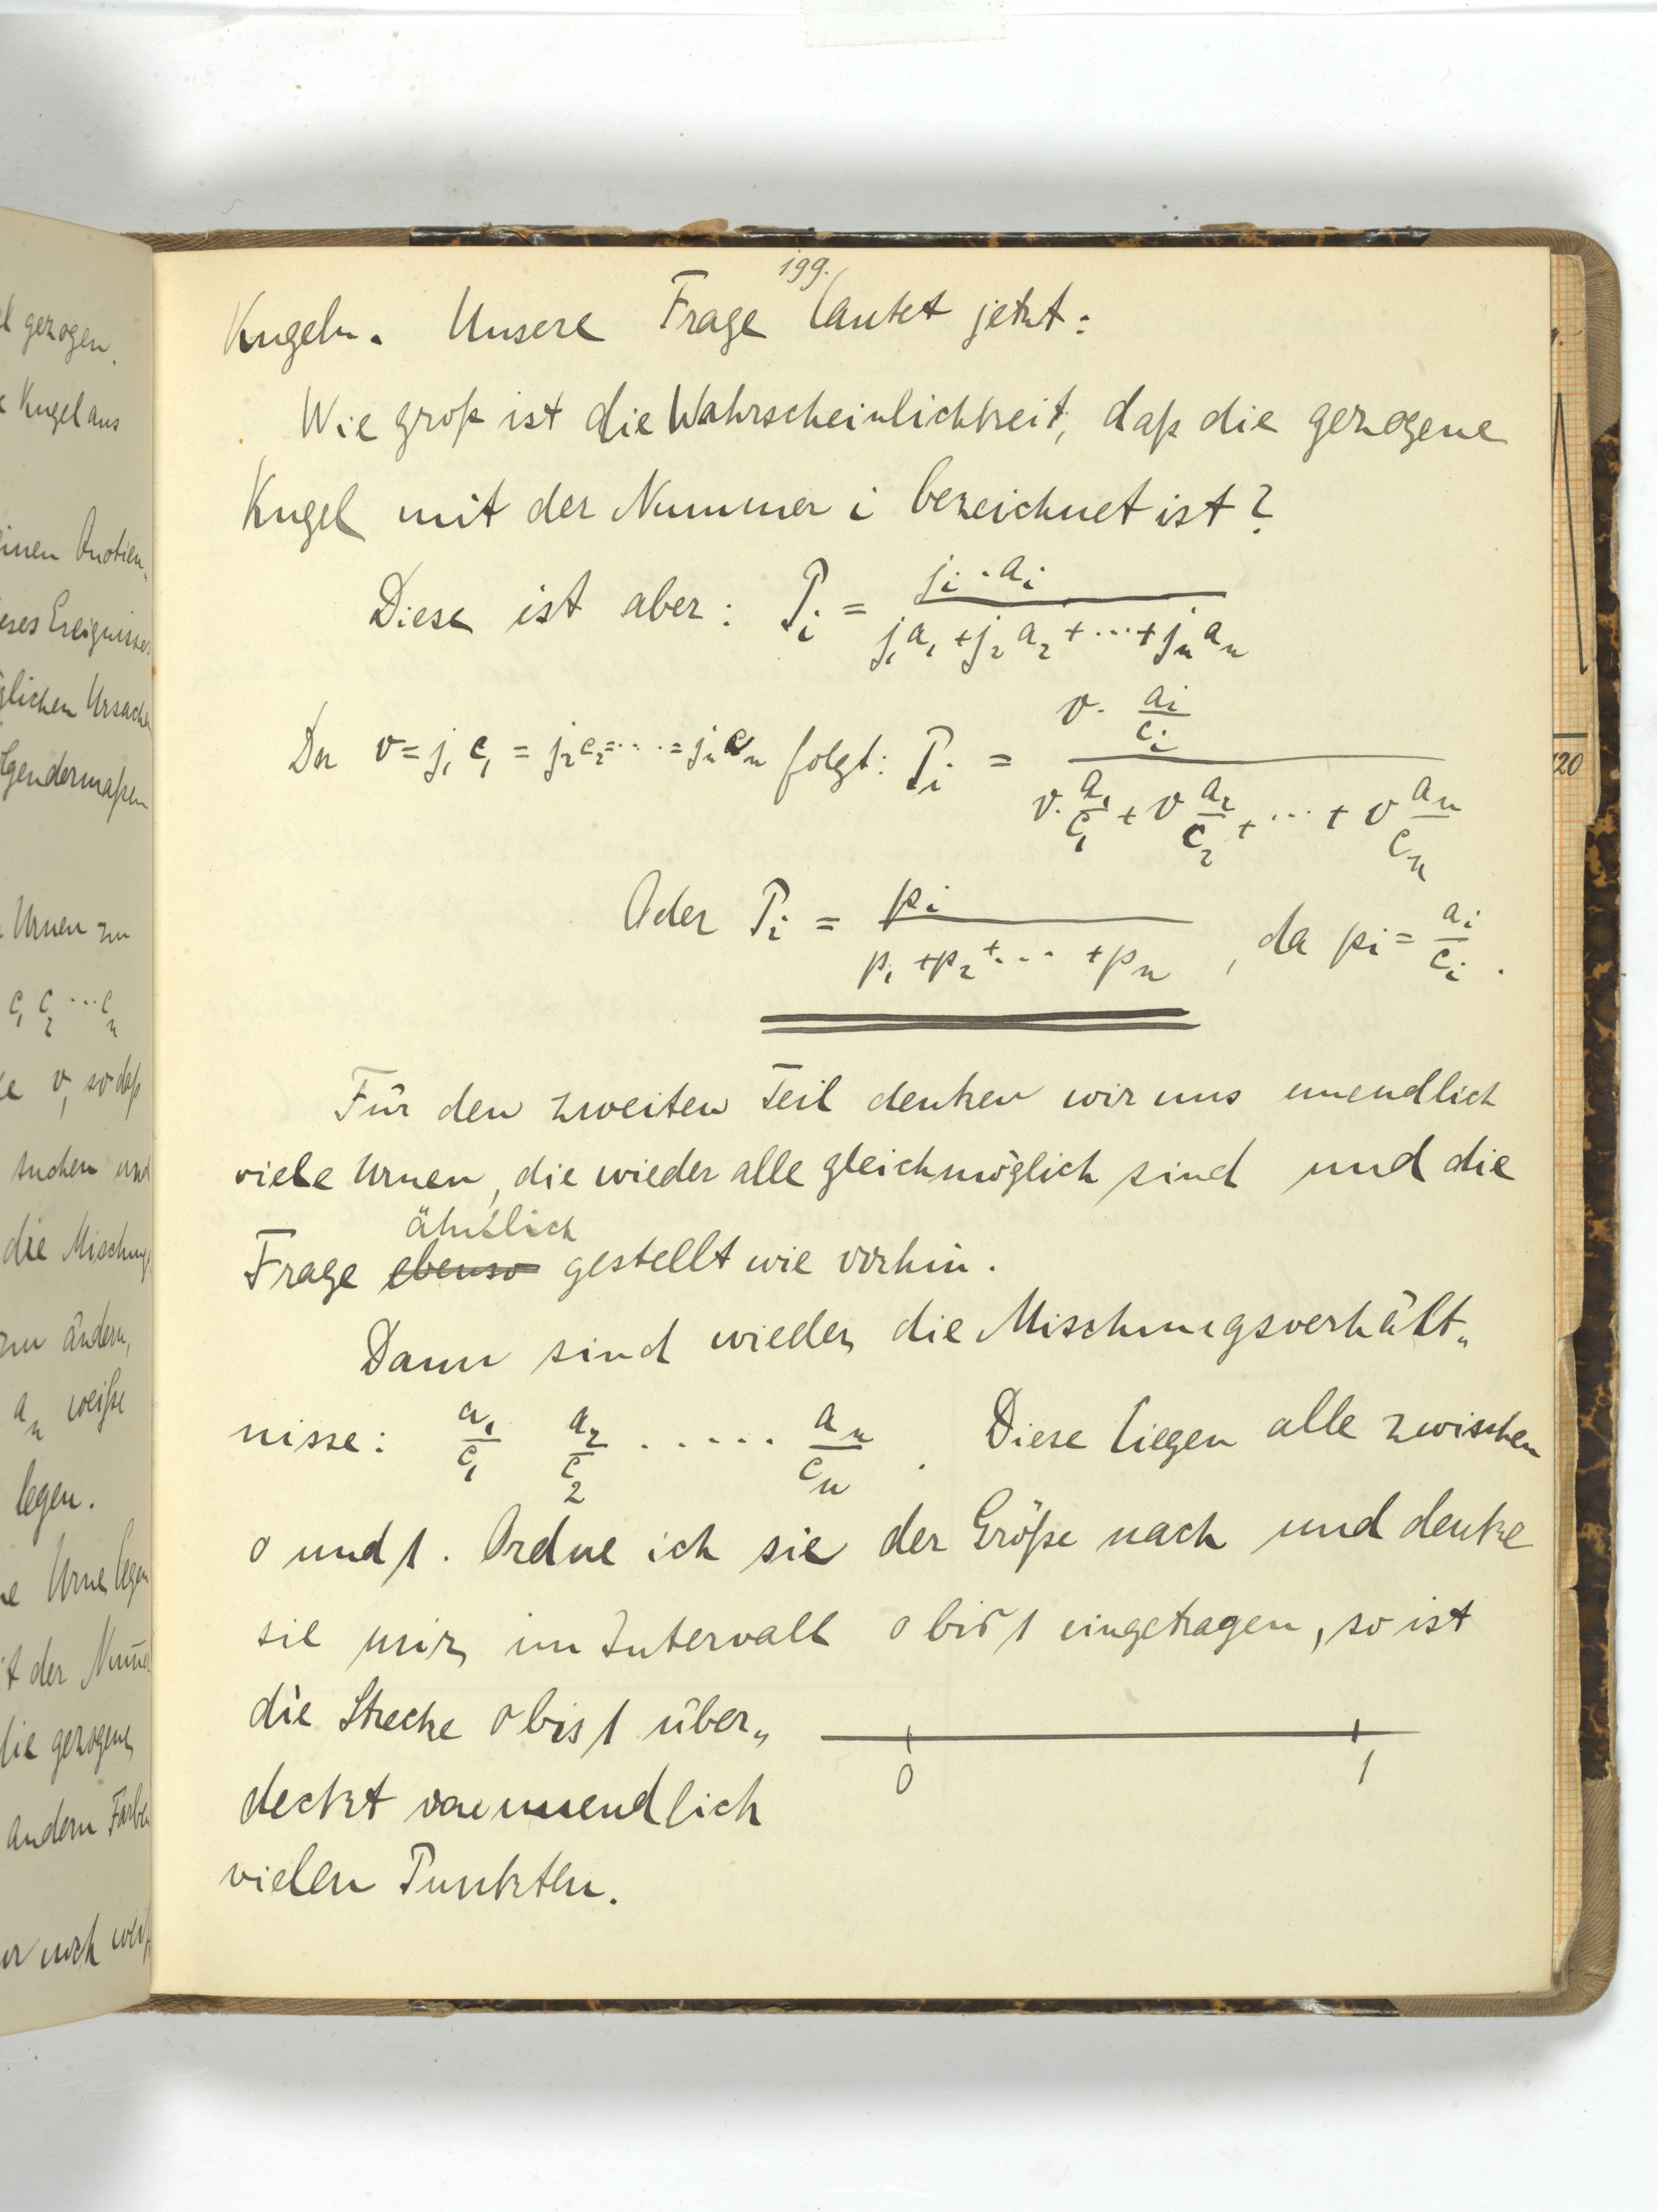 l gezogen.
Kugel aus
inen Quotien„
eses Ereignisses
glichen Ursachen
lgendermaßen
Urnen zu
c₁ c₂ ... cₙ
e v, so daß
suchen und
die Mischungs
zu ändern,
aₙ weiße
legen.
ne Urne legen
it der Num̄e
die gezogene
andern Farbe
noch weiß
199.
Kugeln. Unsere Frage lautet jetzt:
Wie groß ist die Wahrscheinlichkeit, daß die gezogene
Kugel mit der Nummer i bezeichnet ist?
Diese ist aber: Pᵢ = jᵢ·aᵢ / (j₁a₁ + j₂a₂ + ··· + jₙaₙ)
Da v = j₁c₁ = j₂c₂ = ··· = jₙcₙ folgt: Pᵢ = v· aᵢ/cᵢ / (v· a₁/c₁ + v a₂/c₂ + ··· + v aₙ/cₙ)
Oder Pᵢ = pᵢ / (p₁ + p₂ + ··· + pₙ), da pᵢ = aᵢ/cᵢ.
Für den zweiten Teil denken wir uns unendlich
viele Urnen, die wieder alle gleichmöglich sind und die
ähnlich
Frage ebenso gestellt wie vorhin.
Dann sind wieder die Mischungsverhält„
nisse: a₁/c₁ a₂/c₂ ······ aₙ/cₙ. Diese liegen alle zwischen
0 und 1. Ordne ich sie der Größe nach und denke
sie mir im Intervall 0 bis 1 eingetragen, so ist
die Strecke 0 bis 1 über„
deckt von unendlich
vielen Punkten.
0 1
20